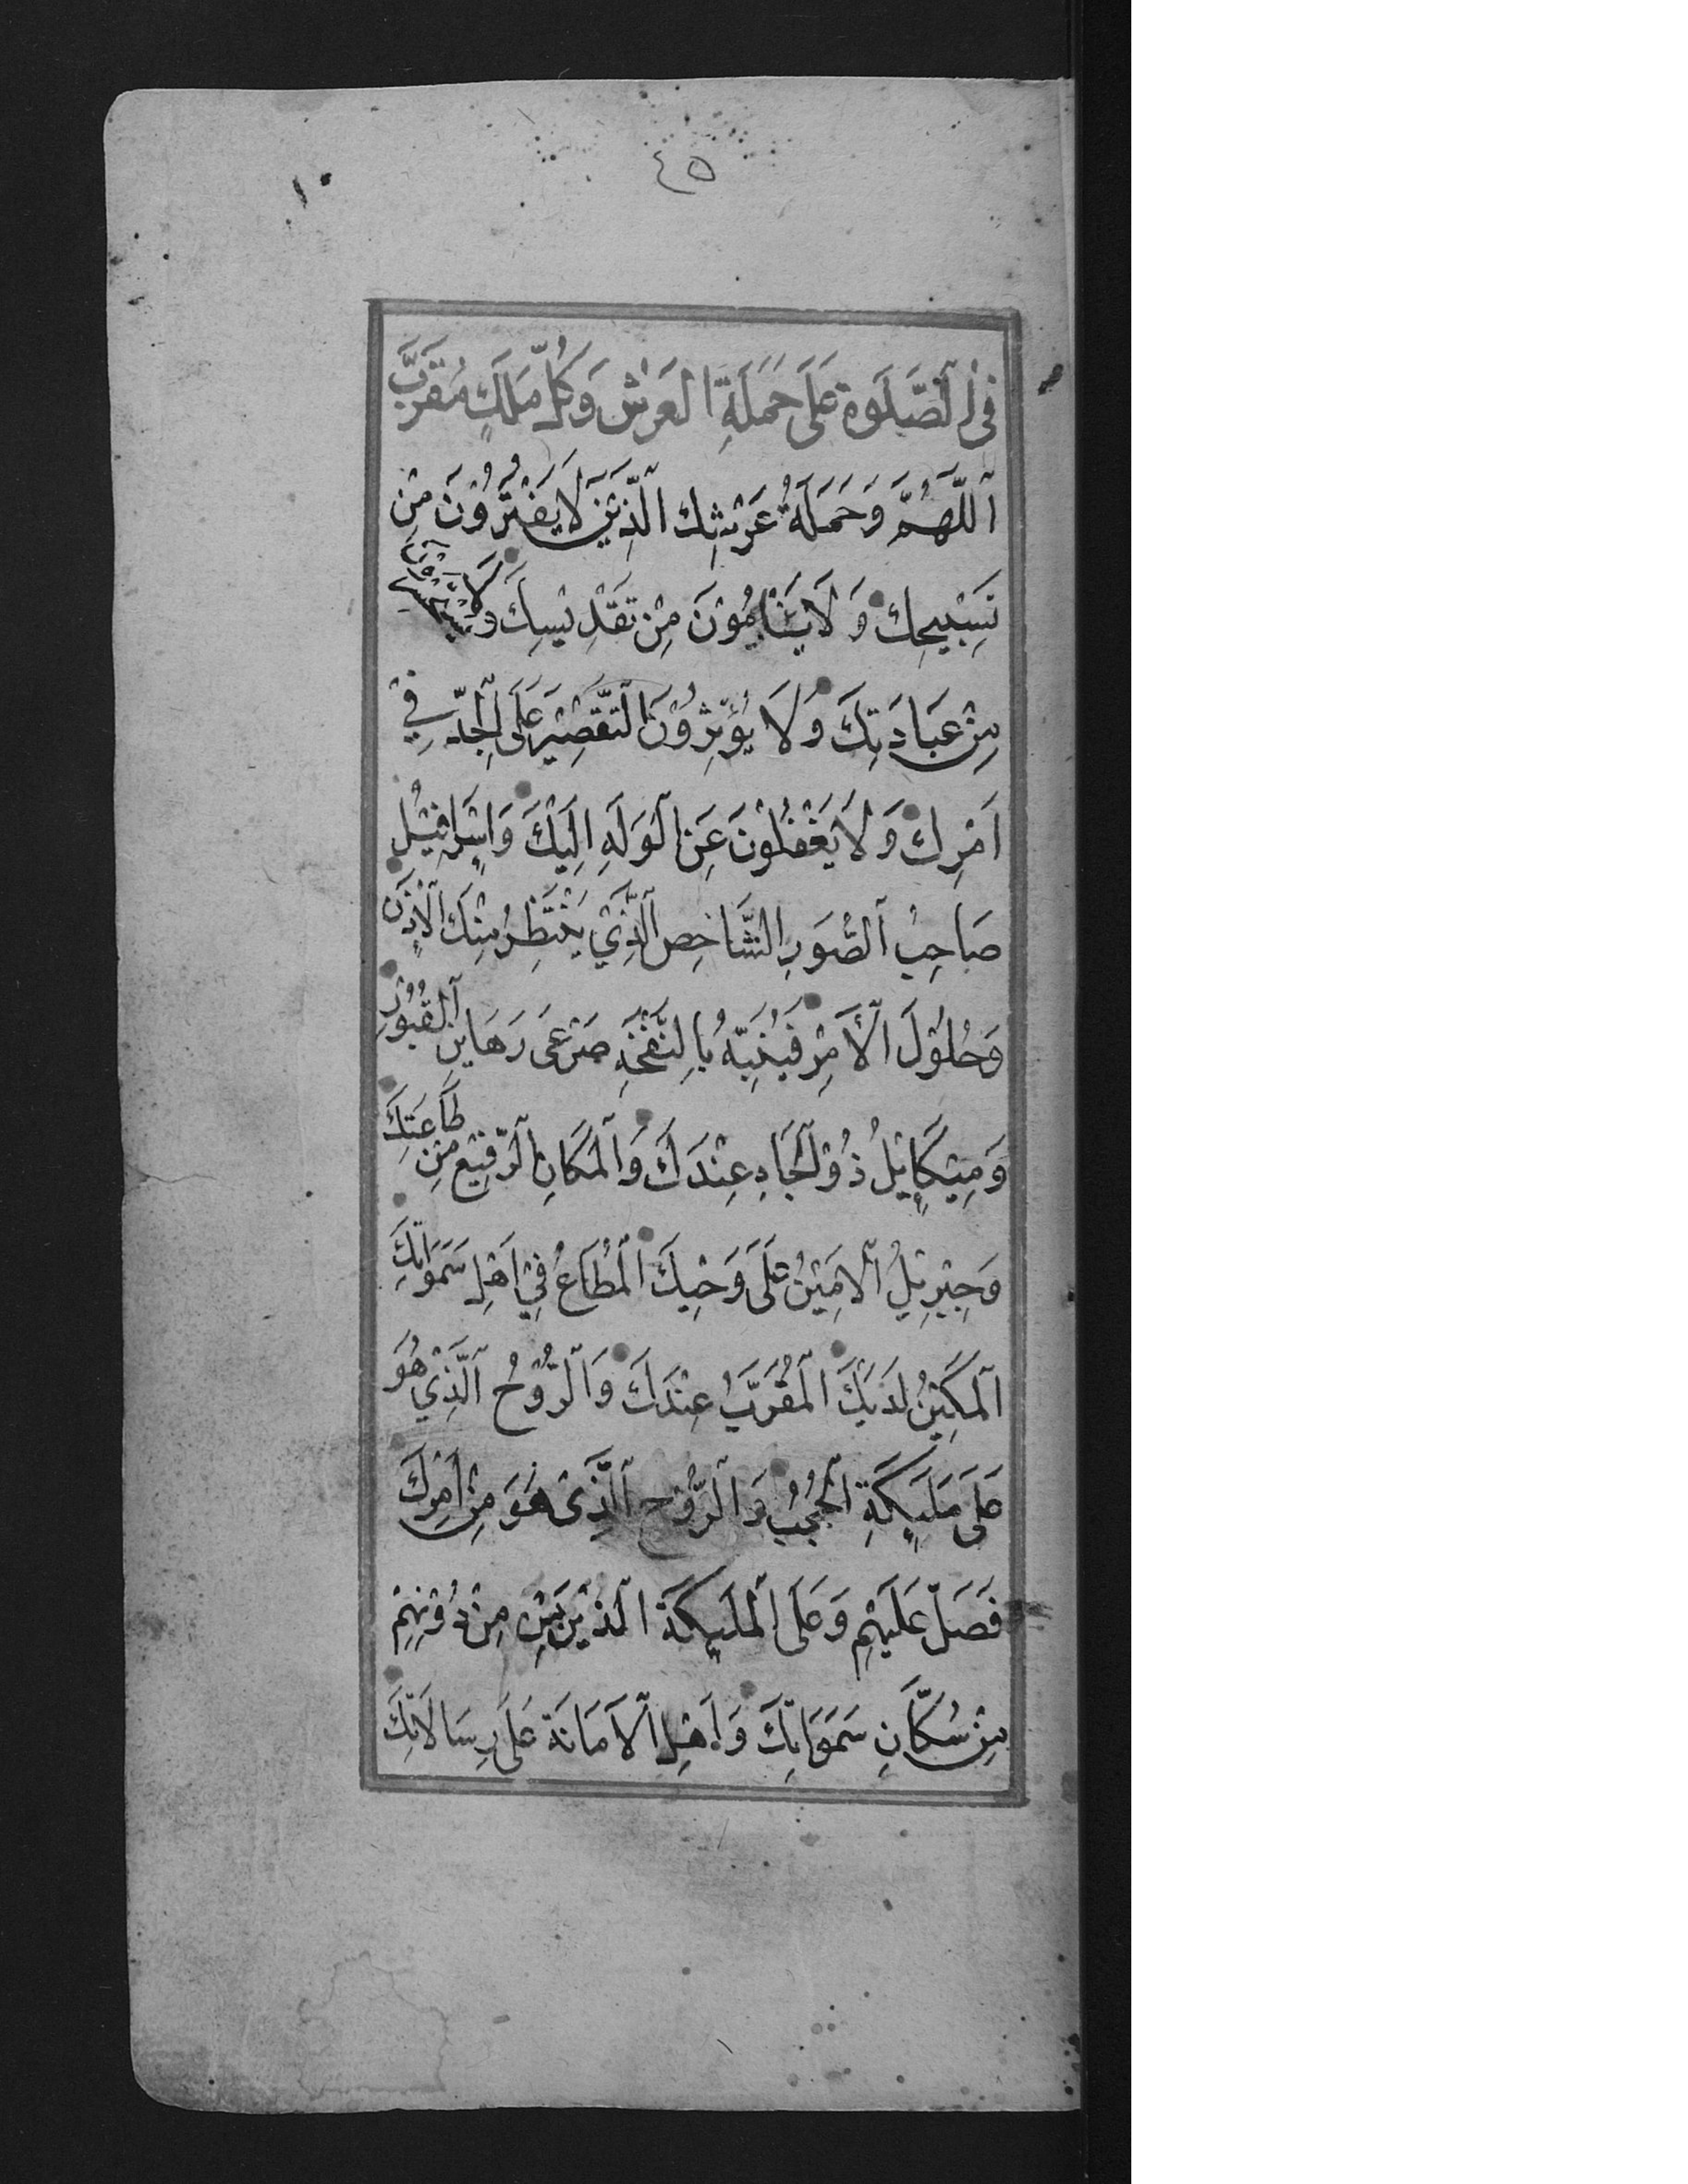 ٤٥
١٠
فِي الصَّلَوةِ عَلَى حَمَلَةِ الْعَرْشِ وَكُلِّ مَلَكٍ مُقَرَّبٍ
اَللّٰهُمَّ وَحَمَلَةُ عَرْشِكَ الَّذِيْنَ لَا يَفْتُرُوْنَ مِنْ
تَسْبِيْحِكَ وَلَا يَسْأَمُوْنَ مِنْ تَقْدِيْسِكَ وَلَا يَسْتَحْسِرُوْنَ
مِنْ عِبَادَتِكَ وَلَا يُؤْثِرُوْنَ التَّقْصِيْرَ عَلَى الْجِدِّ فِيْ
اَمْرِكَ وَلَا يَغْفُلُوْنَ عَنِ الْوَلَهِ اِلَيْكَ وَاِسْرَافِيْلُ
صَاحِبُ الصُّوَرِ الشَّاخِصُ الَّذِيْ يَنْتَظِرُ مِنْكَ الْاِذْنَ
وَحُلُوْلَ الْاَمْرِ فَيُنَبِّهُ بِالنَّفْخَةِ صَرْعَى رَهَايِنِ الْقُبُوْرِ
وَمِيْكَايِيْلُ ذُوْ الْجَاهِ عِنْدَكَ وَالْمَكَانِ الرَّفِيْعِ مِنْ طَاعَتِكَ
وَجِبْرِيْلُ الْاَمِيْنُ عَلَى وَحْيِكَ الْمُطَاعُ فِيْ اَهْلِ سَمٰوَاتِكَ
اَلْمَكِيْنُ لَدَيْكَ الْمُقَرَّبُ عِنْدَكَ وَالرُّوْحُ الَّذِيْ هُوَ
عَلَى مَلٰيِكَةِ الْحُجُبِ وَالرُّوْحُ الَّذِيْ هُوَ مِنْ اَمْرِكَ
فَصَلِّ عَلَيْهِمْ وَعَلَى الْمَلٰيِكَةِ الَّذِيْنَ مِنْ دُوْنِهِمْ
مِنْ سُكَّانِ سَمَوَاتِكَ وَاَهْلِ الْاَمَانَةِ عَلَى رِسَالَاتِكَ